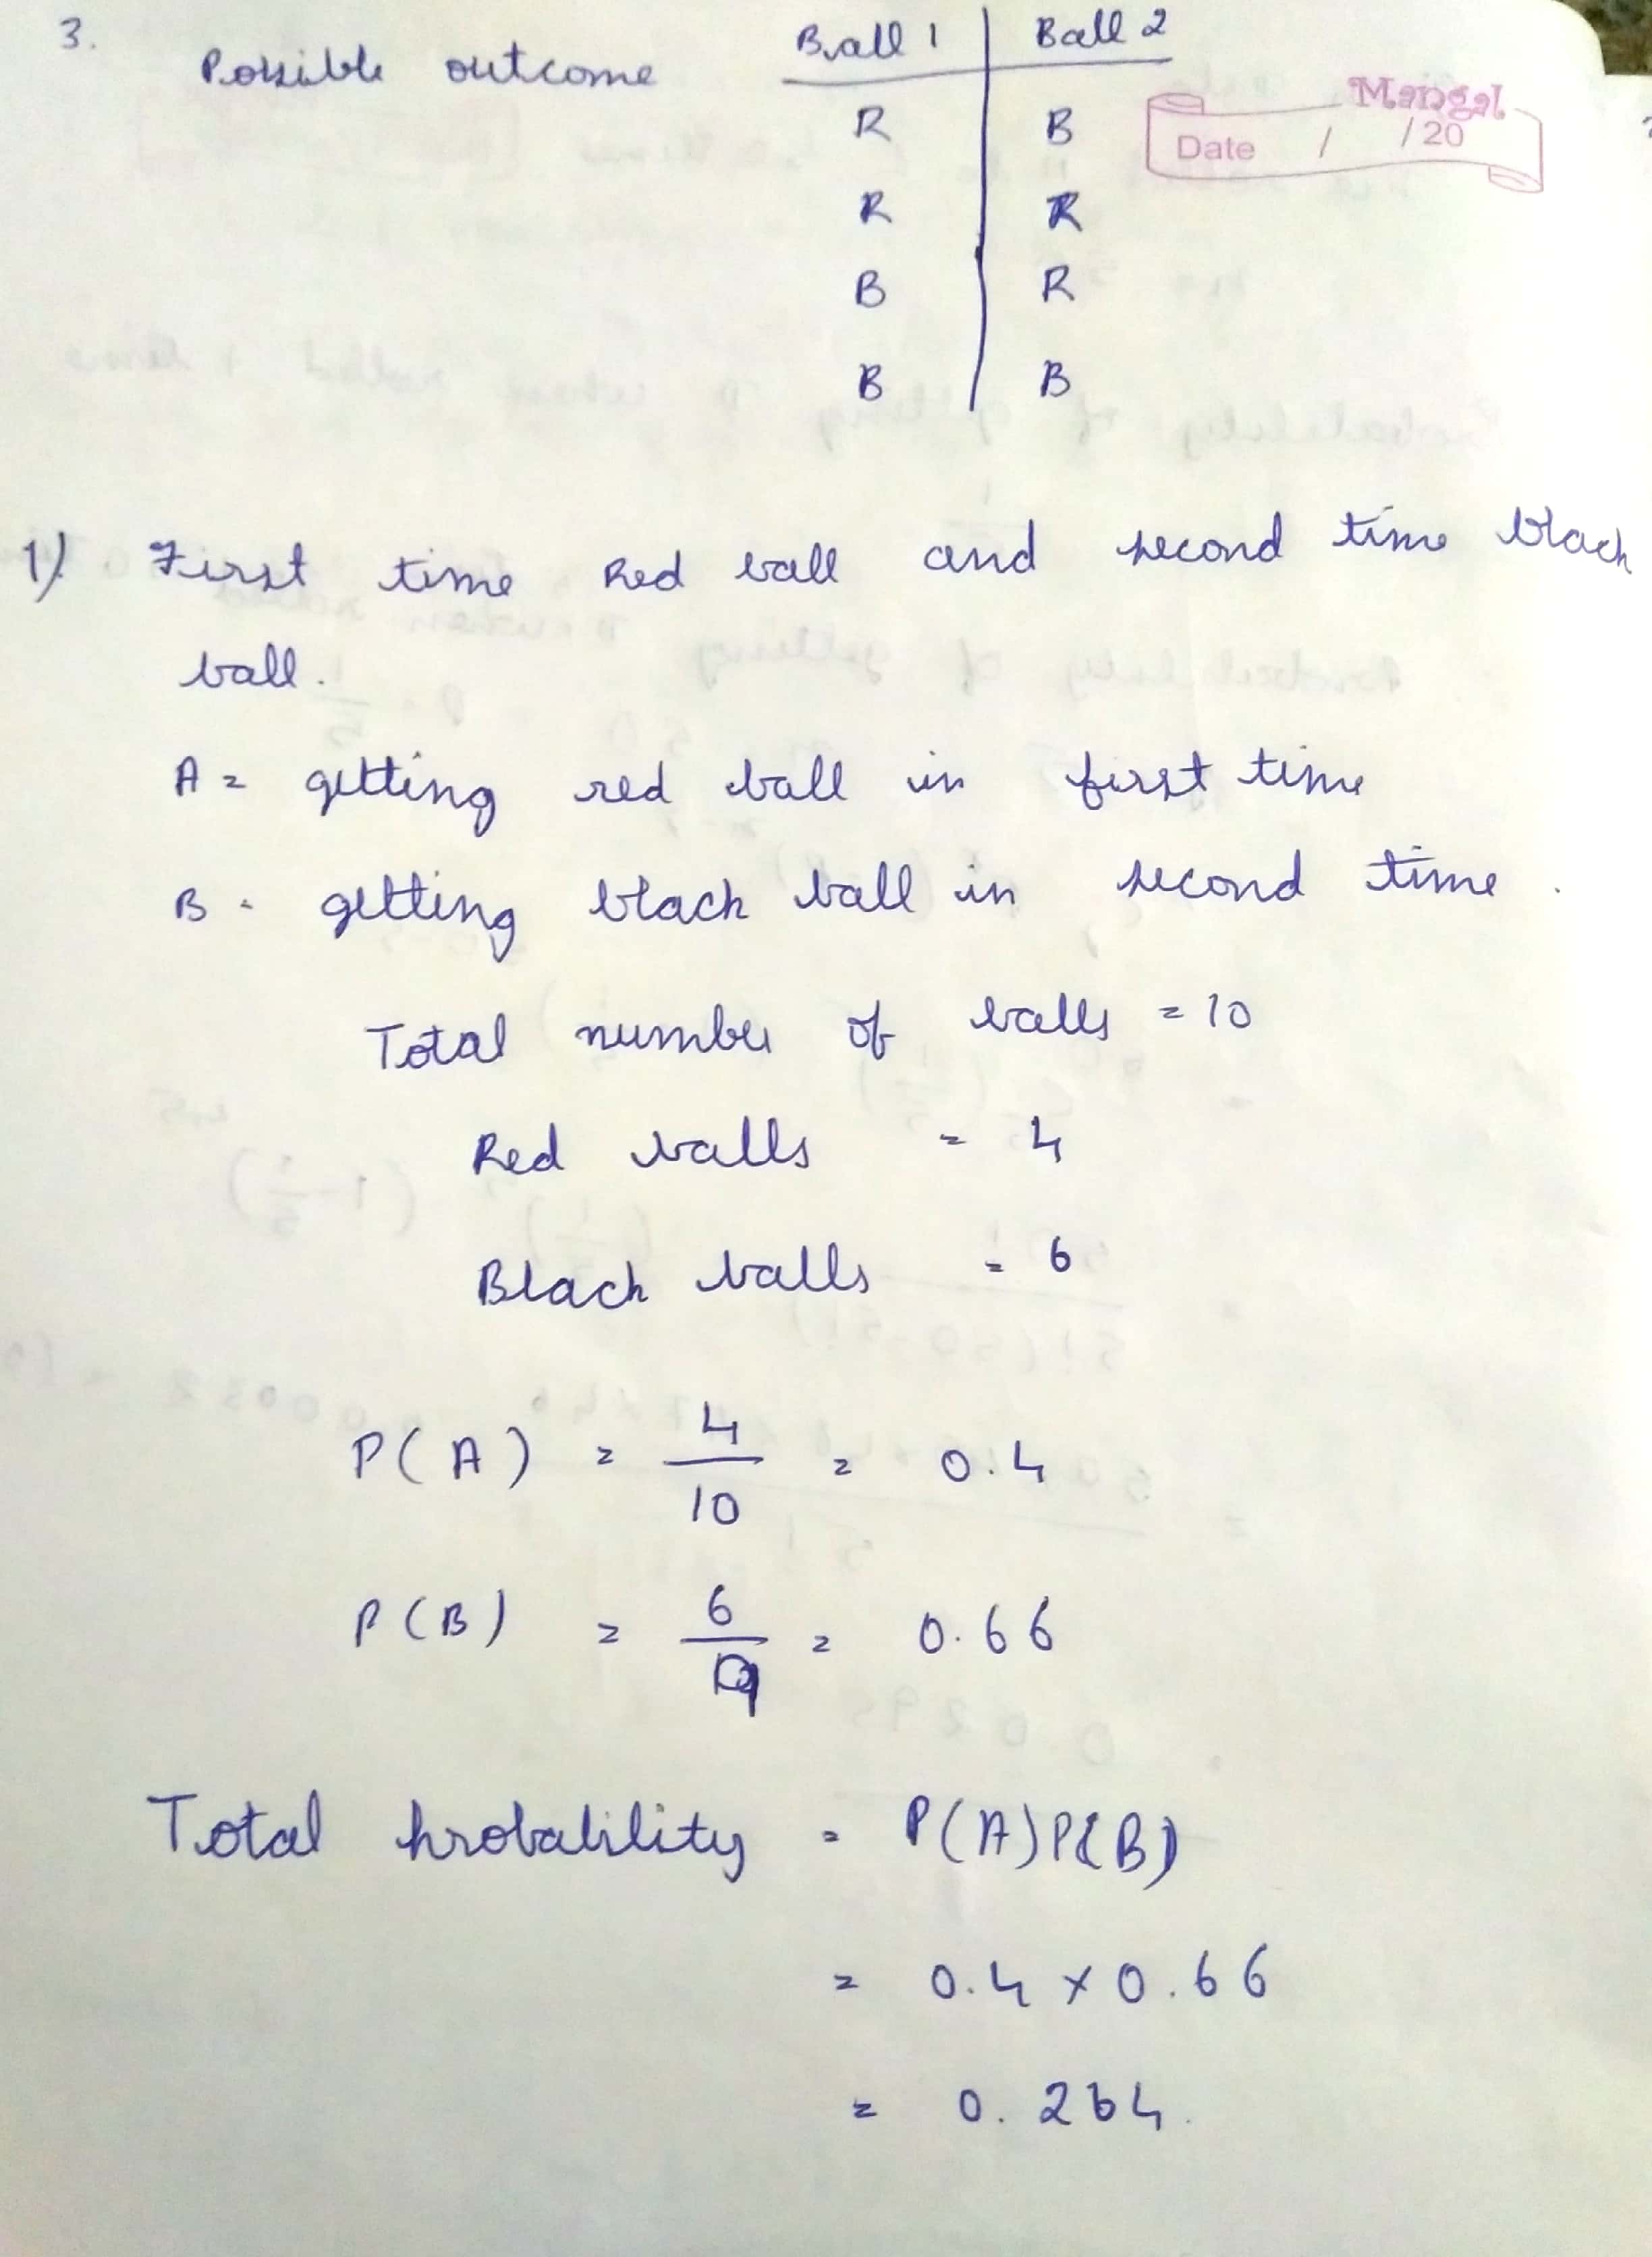 3.
Possible outcome
Ball 1 Ball 2
R B
R R
B R
B B
Mangal
Date / /20
1) First time Red ball and second time black
ball.
A = getting red ball in first time
B = getting black ball in second time.
Total number of balls = 10
Red balls = 4
Black balls = 6
P(A) = 4/10 = 0.4
P(B) = 6/9 = 0.66
Total probability = P(A)P(B)
= 0.4 × 0.66
= 0.264.